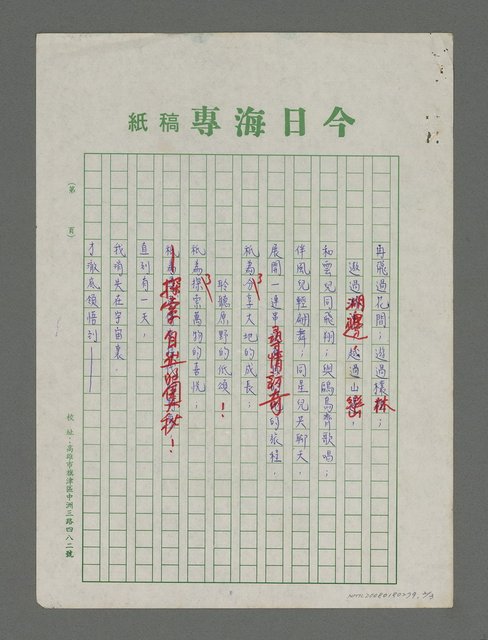 今日海專 稿紙
(第 頁)
再飛過花間；遊過樣林；
遨過湖邊越過山巒，
和雲兒同飛翔；與鷗鳥齊歌唱；
伴風兒輕翩舞；同星兒共聊天，
展開一連串尋情訪奇的旅程，
祇為分享大地的成長；
聆聽原野的低頌！
祇為探索萬物的喜悅；
探索自然的奧秘！
直到有一天，
我消失在宇宙裏，
才澈底領悟到——
校 址：高雄市旗津區中洲三路四八二號